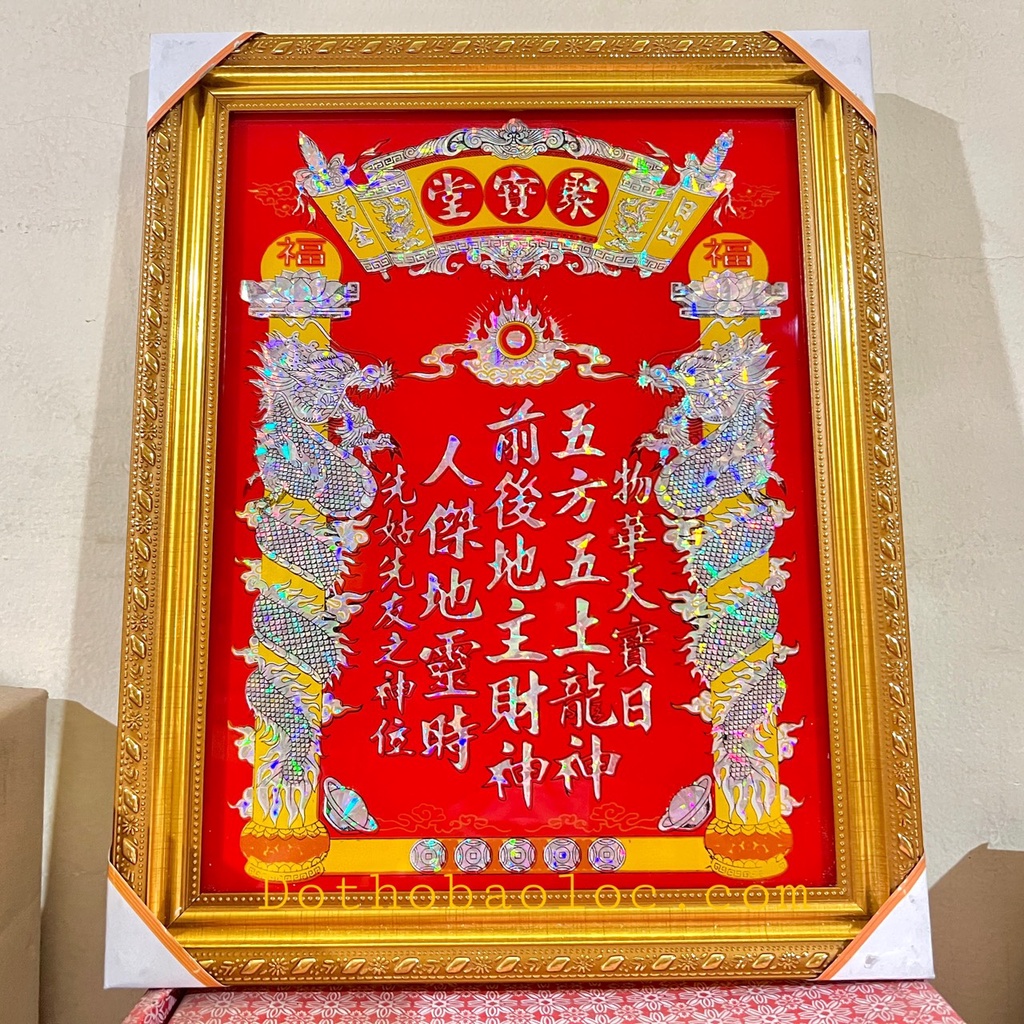 聚寶堂
日進
萬金
福
福
物華天寶日
五方五土龍神
前後地主財神
人傑地靈時
先姑先友之神位
Dothobaoloc.com